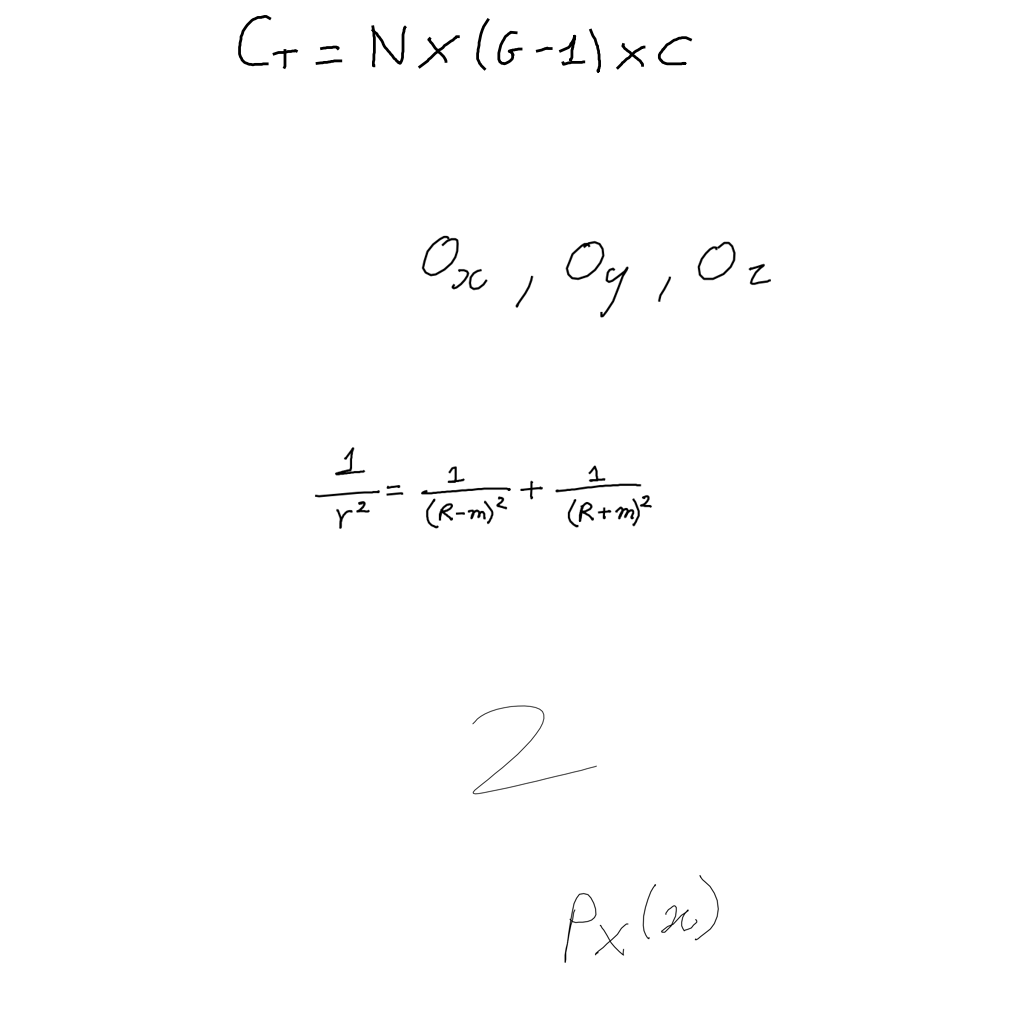 C_T = N × (G-1) × C
O_x , O_y , O_z
\frac{1}{r^2} = \frac{1}{(R-m)^2} + \frac{1}{(R+m)^2}
2
P_X(x)